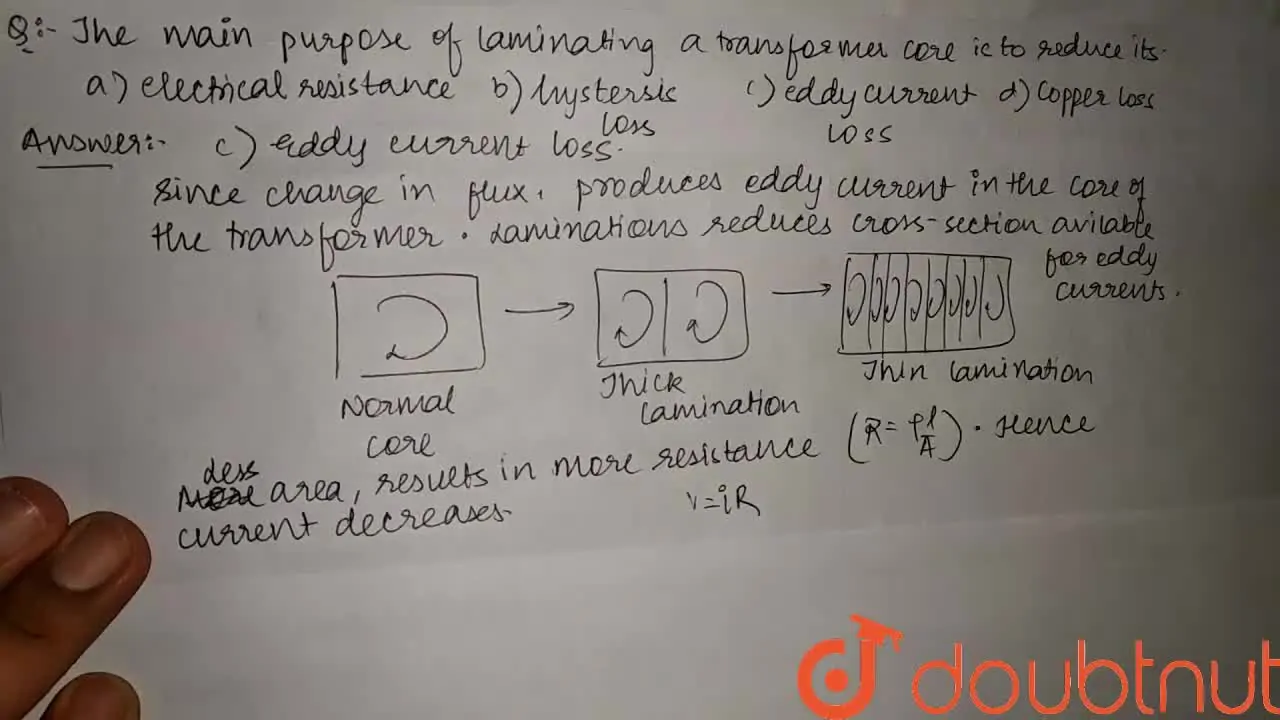 Q:- The main purpose of laminating a transformer core ic to reduce its.
a) electrical resistance b) hystersis loss c) eddy current loss d) copper loss
Answer:- c) eddy current loss.
Since change in flux, produces eddy current in the core of
the transformer. Laminations reduces cross-section avilable
for eddy currents.
Normal core
Thick lamination
Thin lamination
less
area, results in more resistance (R = ρl/A). Hence
current decreases.
V=iR
doubtnut